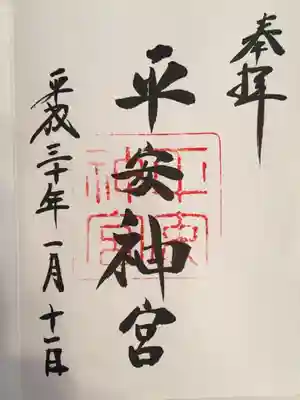 奉拝
平安神宮
平安
神宮
平成三十年一月十一日